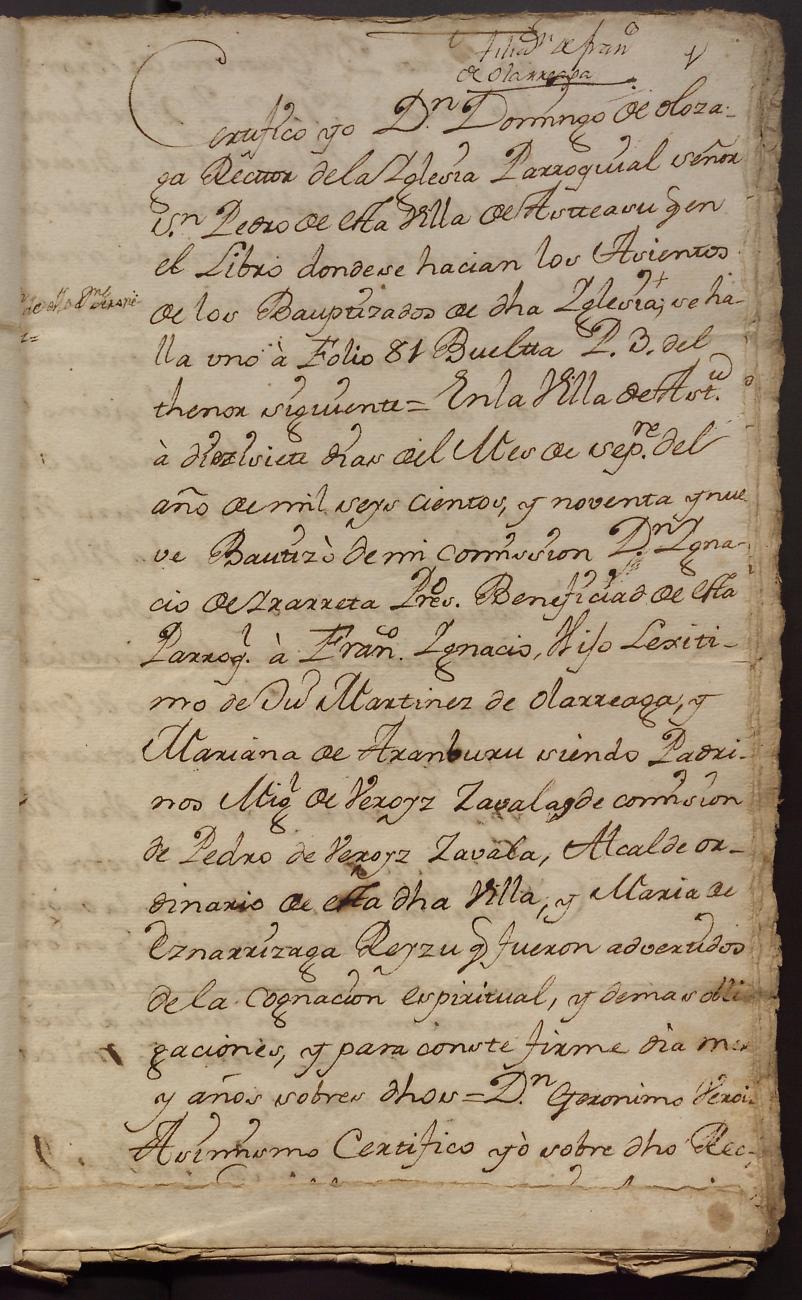 filiaⁿ de franᶜᵒ
de olarreaga
1
Certifico yo Dⁿ. Domingo de oloza-
ga Rector dela Yglesia Parroquial señor
Sⁿ. Pedro de esta Villa de Astteasu q̃ en
el Libro dondese hacian los Asientos
de los Bauptizados de dha Yglesia; se ha-
lla uno à Folio 81 Bueltta P. 3. del
thenor siguiente = Enla Villa de Astᵘ.
à diezisiete dias del Mes de sepʳᵉ. del
año de mil seys cientos, y noventa ynue
ve Bautizò de mi comission Dⁿ Ygna-
cio de Yrarreta Pres. Beneficiad de esta
Parroqˡ. à Franᶜᵒ. Ygnacio, Hijo Lexiti-
mo de Juº Martinez de olarreaga, y
Mariana de Aranburu siendo Padri-
nos Migˡ de Veroyz Zavala, de comision
de Pedro de Veroyz Zavala, Alcalde or-
dinario de esta dha Villa, y Maria de
Eznarrizaga Reyzu q̃ fueron advertidos
dela Cognacion espiritual, y demas obli
gaciones, y para conste firme dia mes
y años sobres dhos = Dⁿ. Geronimo Veroi
Asimismo Certifico yò sobre dho Rec-